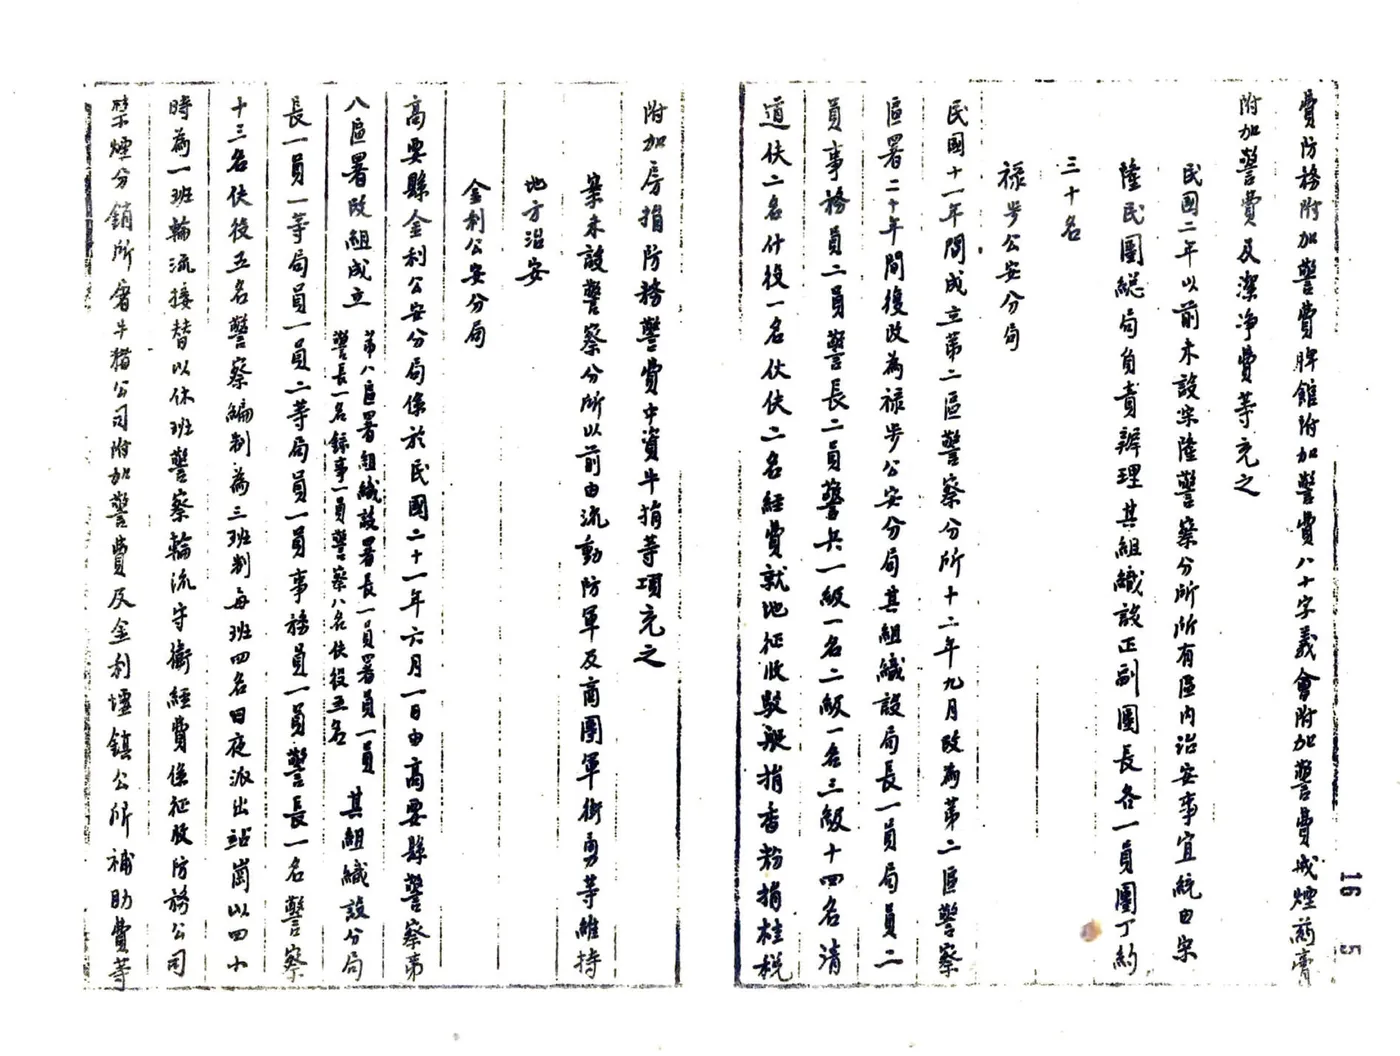 費防務附加警費牌館附加警費八十字義會附加警費戒煙藥膏
附加警費及潔净費等充之
民國二年以前未設宋隆警察分所所有區内治安事宜統由宋
隆民團総局負責辦理其組織設正副團長各一員團丁約
三十名
禄步公安分局
民國十一年間成立第二區警察分所十二年九月改為第二區警察
區署二十年間復改為禄步公安分局其組織設局長一員局員二
員事務員二員警長二員警兵一級一名二級一名三級十四名清
道伕二名什役一名伙伕二名經費就地征收艇捐香粉捐桂税
附加房捐防務警費中資牛捐等項充之
案未設警察分所以前由流動防軍及商團軍衛勇等維持
地方治安
金利公安分局
高要縣金利公安分局係於民國二十一年六月一日由高要縣警察第
八區署改組成立
第八區署組織設署長一員署員一員
警長一名録事一員警察八名伕役五名
其組織設分局
長一員一等局員一員二等局員一員事務員一員警長一名警察
十三名伕役五名警察編制為三班制每班四名日夜派出站崗以四小
時為一班輪流接替以休班警察輪流守衛經費係征收防務公司
禁煙分銷所屠牛猪公司附加警費及金利墟鎮公所補助費等
16 5